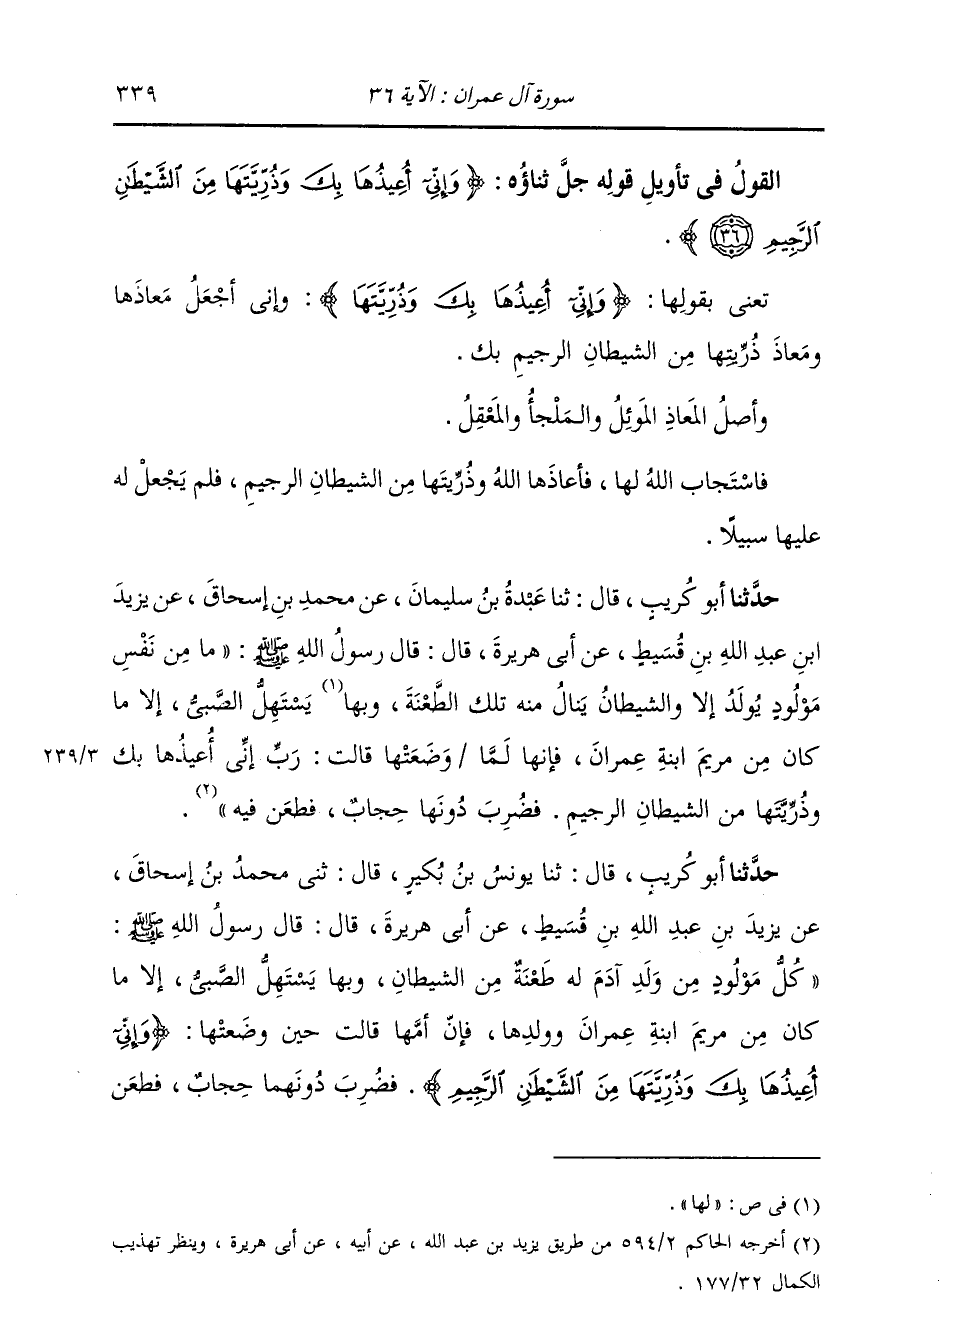 سورة آل عمران : الآية ٣٦ ٣٣٩
القولُ فى تأويلِ قولِه جلَّ ثناؤُه : ﴿ وَإِنِّىٓ أُعِيذُهَا بِكَ وَذُرِّيَّتَهَا مِنَ ٱلشَّيْطَٰنِ
ٱلرَّجِيمِ ٣٦ ﴾ .
تعنى بقولِها : ﴿ وَإِنِّىٓ أُعِيذُهَا بِكَ وَذُرِّيَّتَهَا ﴾ : وإنى أجْعَلُ مَعاذَها
ومَعاذَ ذُرِّيتِها مِن الشيطانِ الرجيمِ بك .
وأصلُ المَعاذِ المَوئِلُ والمَلْجأُ والمَعْقِلُ .
فاسْتَجاب اللهُ لها ، فأعاذَها اللهُ وذُرِّيتَها مِن الشيطانِ الرجيمِ ، فلم يَجْعلْ له
عليها سبيلًا .
حدَّثنا أبو كُريبٍ ، قال : ثنا عَبْدةُ بنُ سليمانَ ، عن محمدِ بنِ إسحاقَ ، عن يزيدَ
ابنِ عبدِ اللهِ بنِ قُسَيطٍ ، عن أبى هريرةَ ، قال : قال رسولُ اللهِ ﷺ : « ما مِن نَفْسٍ
مَوْلُودٍ يُولَدُ إلا والشيطانُ يَنالُ منه تلك الطَّعْنَةَ ، وبها(١) يَسْتَهِلُّ الصَّبىُّ ، إلا ما
كان مِن مريمَ ابنةِ عِمرانَ ، فإنها لَمَّا / وَضَعَتْها قالت : رَبِّ إنِّى أُعيذُها بك ٢٣٩/٣
وذُرِّيَّتَها من الشيطانِ الرجيمِ . فضُرِبَ دُونَها حِجابٌ ، فطعَن فيه »(٢) .
حدَّثنا أبو كُريبٍ ، قال : ثنا يونسُ بنُ بُكيرٍ ، قال : ثنى محمدُ بنُ إسحاقَ ،
عن يزيدَ بنِ عبدِ اللهِ بنِ قُسَيطٍ ، عن أبى هريرةَ ، قال : قال رسولُ اللهِ ﷺ :
« كُلُّ مَوْلُودٍ مِن وَلَدِ آدَمَ له طَعْنَةٌ مِن الشيطانِ ، وبها يَسْتَهِلُّ الصَّبىُّ ، إلا ما
كان مِن مريمَ ابنةِ عِمرانَ وولدِها ، فإنّ أمَّها قالت حين وضَعتْها : ﴿ وَإِنِّىٓ
أُعِيذُهَا بِكَ وَذُرِّيَّتَهَا مِنَ ٱلشَّيْطَٰنِ ٱلرَّجِيمِ ﴾ . فضُرِبَ دُونَهما حِجابٌ ، فطعَن
(١) فى ص : « لها » .
(٢) أخرجه الحاكم ٥٩٤/٢ من طريق يزيد بن عبد الله ، عن أبيه ، عن أبى هريرة ، وينظر تهذيب
الكمال ١٧٧/٣٢ .